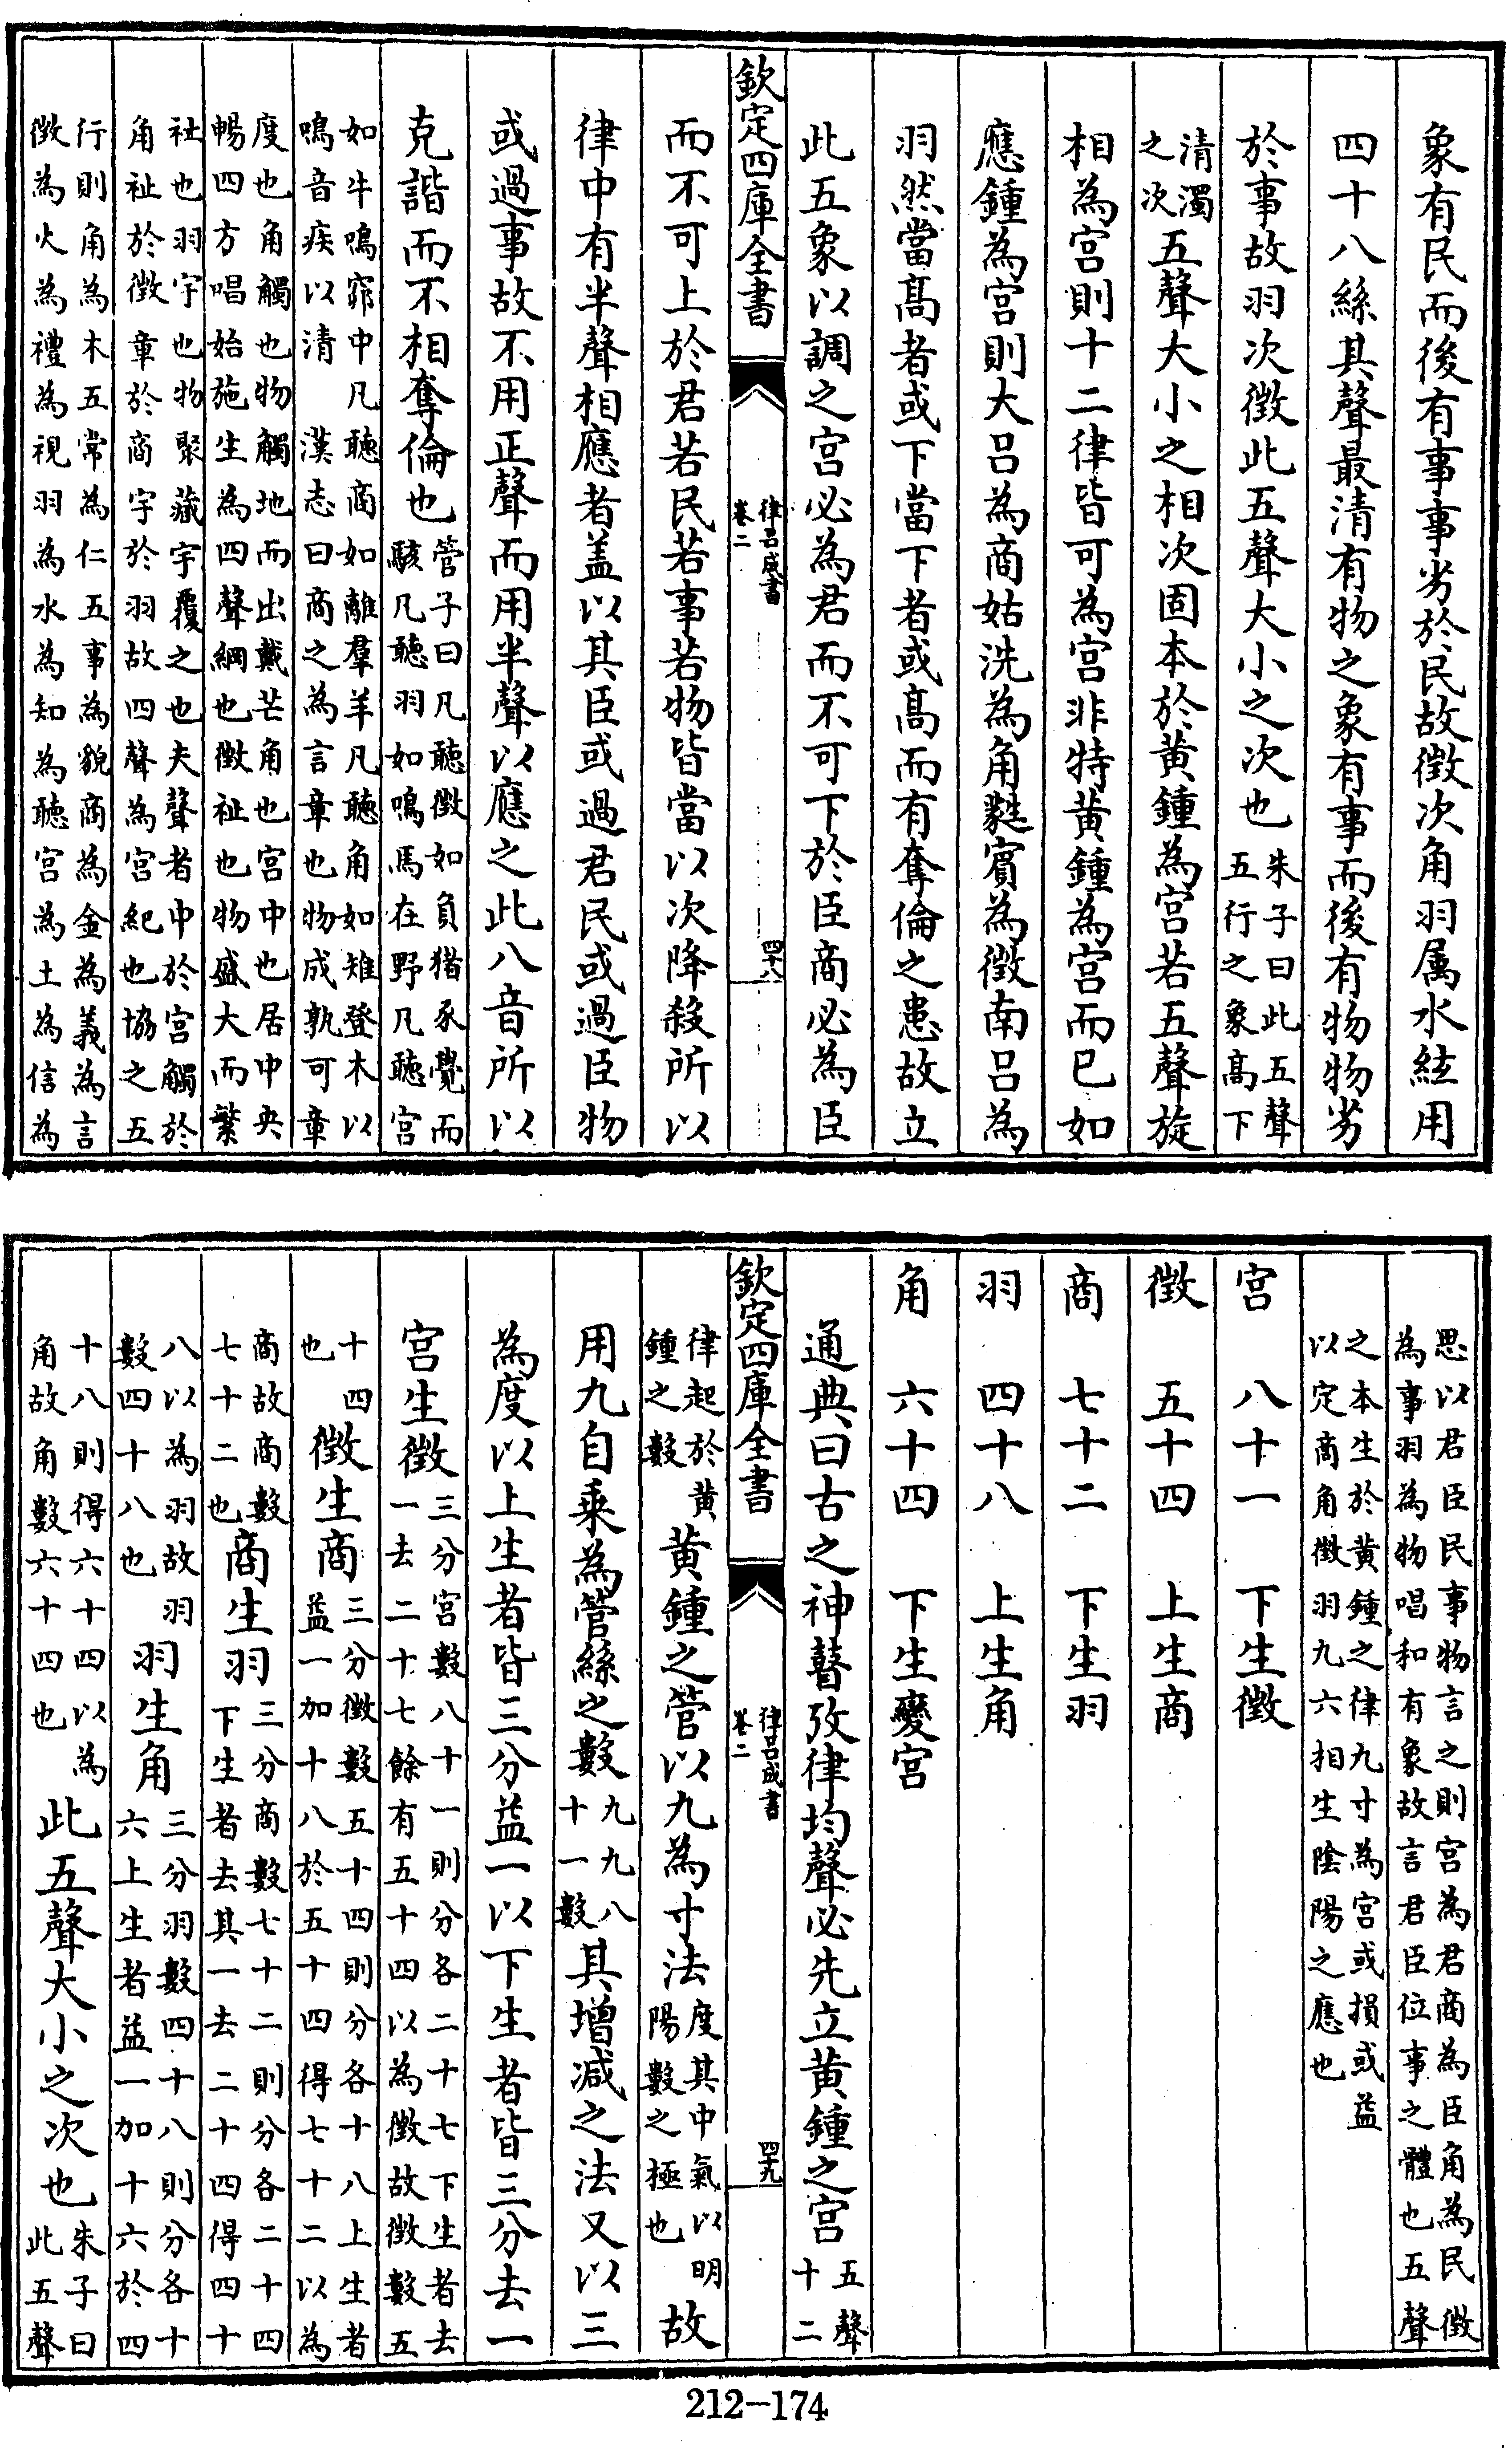 象有民而後有事事劣於民故徴次角羽属水絃用
四十八絲其聲最清有物之象有事而後有物物劣
於事故羽次徴此五聲大小之次也朱子曰此五聲五行之象高下
清濁之次五聲大小之相次固本於黄鍾為宫若五聲旋
相為宫則十二律皆可為宫非特黄鍾為宫而已如
應鍾為宫則大吕為商姑洗為角蕤賓為徴南吕為
羽然當高者或下當下者或高而有奪倫之患故立
此五象以調之宫必為君而不可下於臣商必為臣
欽定四庫全書
律吕成書
卷二
四十八
而不可上於君若民若事若物皆當以次降殺所以
律中有半聲相應者盖以其臣或過君民或過臣物
或過事故不用正聲而用半聲以應之此八音所以
克諧而不相奪倫也管子曰凡聽徴如負猪豕覺而駭凡聽羽如鳴馬在野凡聽宫
如牛鳴窌中凡聽商如離羣羊凡聽角如雉登木以
鳴音疾以清漢志曰商之為言章也物成孰可章
度也角觸也物觸地而出戴芒角也宫中也居中央
暢四方唱始施生為四聲綱也徴祉也物盛大而繁
祉也羽宇也物聚藏宇覆之也夫聲者中於宫觸於
角祉於徴章於商宇於羽故四聲為宫紀也協之五
行則角為木五常為仁五事為貌商為金為義為言
徴為火為禮為視羽為水為知為聽宫為土為信為
思以君臣民事物言之則宫為君商為臣角為民徴
為事羽為物唱和有象故言君臣位事之體也五聲
之本生於黄鍾之律九寸為宫或損或益
以定商角徴羽九六相生陰陽之應也
宫 八十一 下生徴
徴 五十四 上生商
商 七十二 下生羽
羽 四十八 上生角
角 六十四 下生變宫
通典曰古之神瞽攷律均聲必先立黄鍾之宫五聲十二
欽定四庫全書
律吕成書
卷二
四十九
律起於黄鍾之數黄鍾之管以九為寸法度其中氣以明陽數之極也故
用九自乗為管絲之數九九八十一數其增减之法又以三
為度以上生者皆三分益一以下生者皆三分去一
宫生徴三分宫數八十一則分各二十七下生者去一去二十七餘有五十四以為徴故徴數五
十四也徴生商三分徴數五十四則分各十八上生者益一加十八於五十四得七十二以為
商故商數七十二也商生羽三分商數七十二則分各二十四下生者去其一去二十四得四十
八以為羽故羽數四十八也羽生角三分羽數四十八則分各十六上生者益一加十六於四
十八則得六十四以為角故角數六十四也此五聲大小之次也朱子曰此五聲
212-174